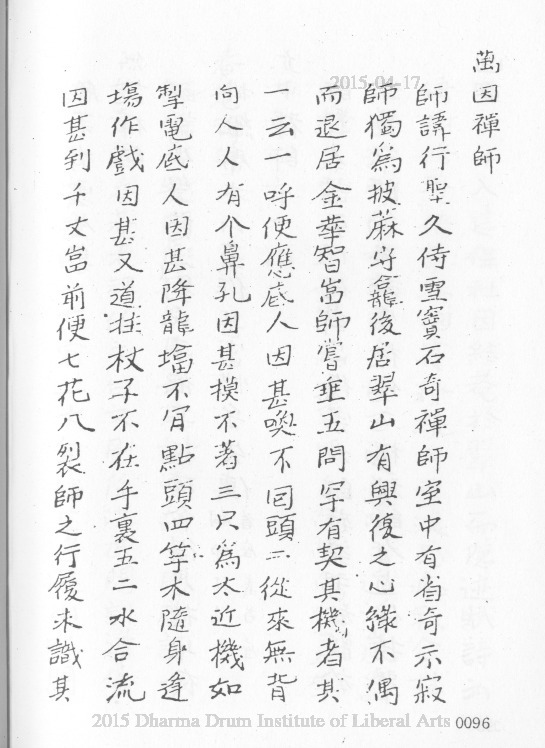 萬因禪師
師諱行聖久侍雪竇石奇禪師室中有省奇示寂
師獨為披蔴守龕後居翠山有興復之心緣不偶
而退居金莘智嵓師嘗垂五問罕有契其機者其
一云一呼便應底人因甚喚不囘頭二從來無背
向人人有个鼻孔因甚摸不著三只為太近機如
掣電底人因甚降龍墖不肎點頭四竿木隨身逢
塲作戲因甚又道拄杖子不在手裏五二水合流
因甚到千丈嵓前便七花八裂師之行履未識其
2015-04-17
2015 Dharma Drum Institute of Liberal Arts
0096